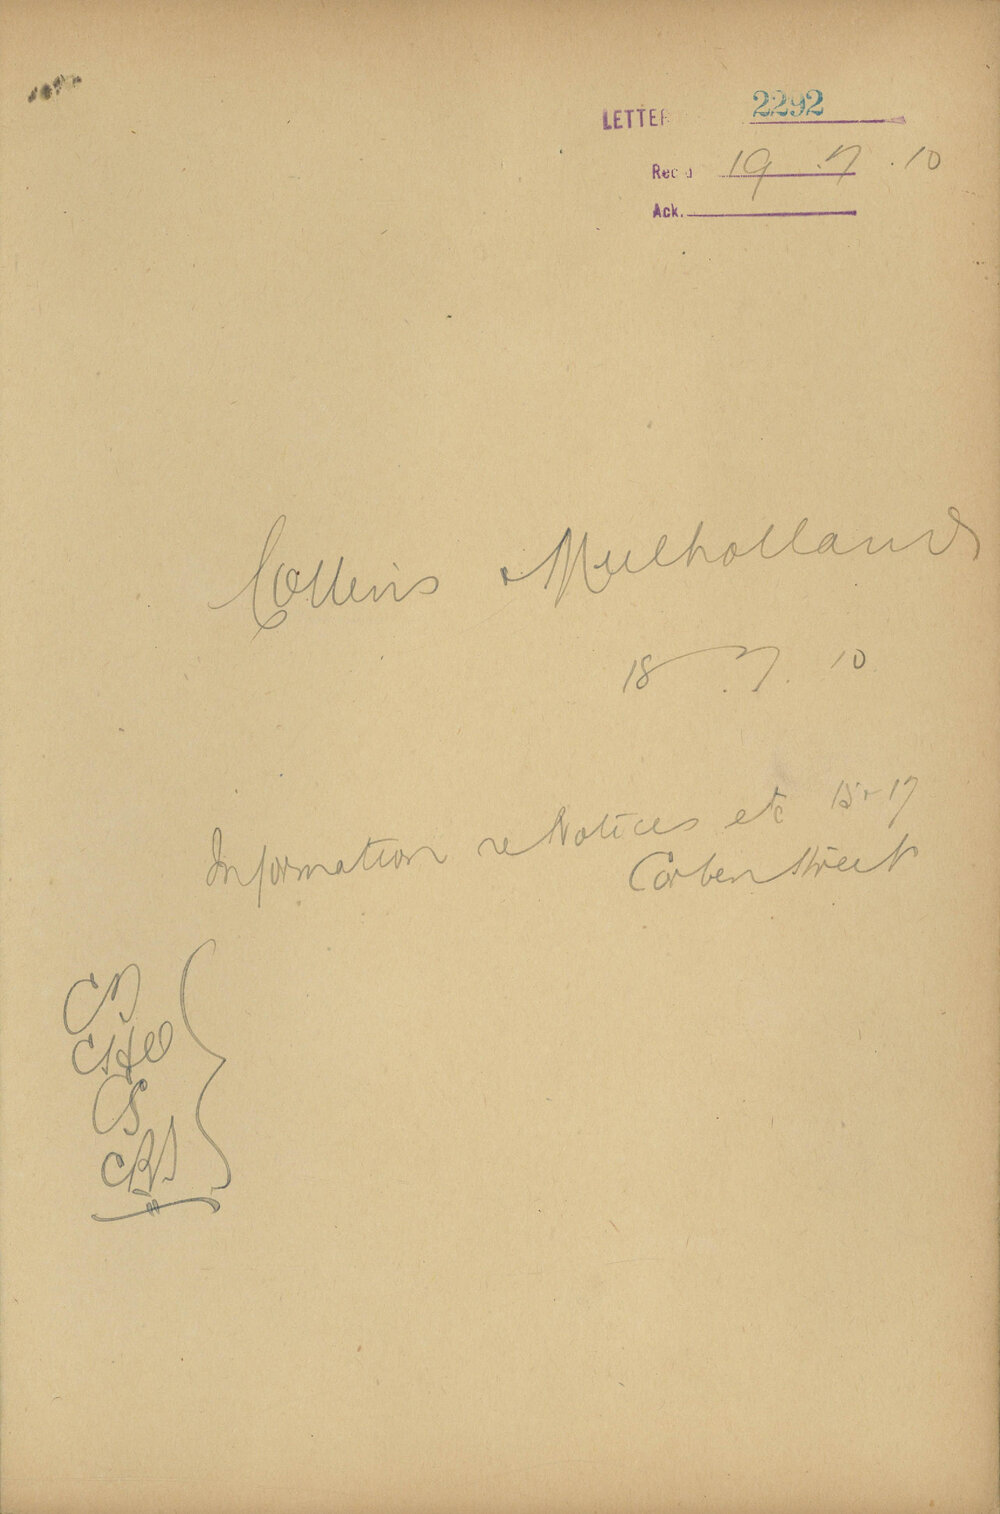 LETTER 2292
Rec'd 19.7.10
Ack.
Collins & Mulholland
18.7.10
Information re Notices etc 15 & 17
Corben Street
CHO
CS